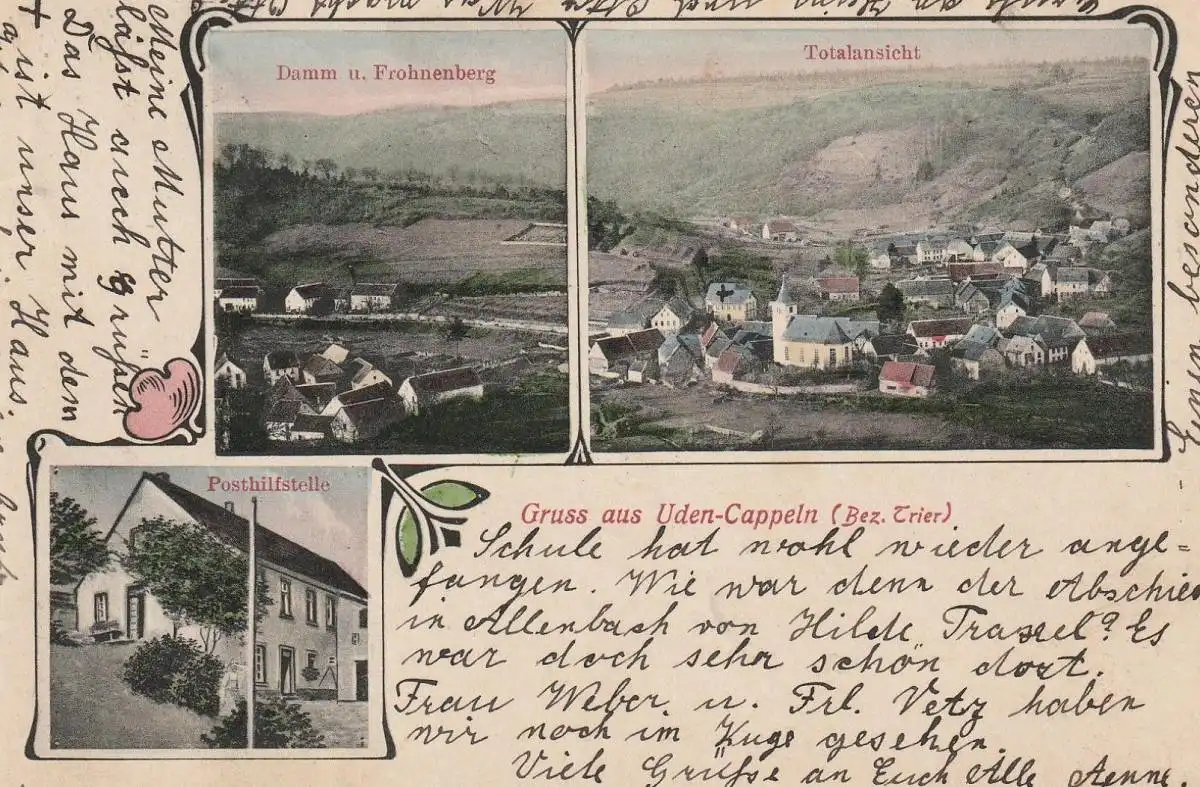 Damm u. Frohnenberg
Totalansicht
Posthilfstelle
Gruss aus Uden-Cappeln (Bez. Trier)
Schule hat wohl wieder ange=
fangen. Wie war denn der Abschied
in Allenbach von Hilde Trassel? Es
war doch sehr schön dort.
Frau Weber. u. Frl. Vetz haben
wir noch im Zuge gesehen.
Viele Grüße an Euch Alle Aenne.
Meine Mutter
läßt auch grüßen
Das Haus mit dem
+ ist unser Haus.
Einen besonderen